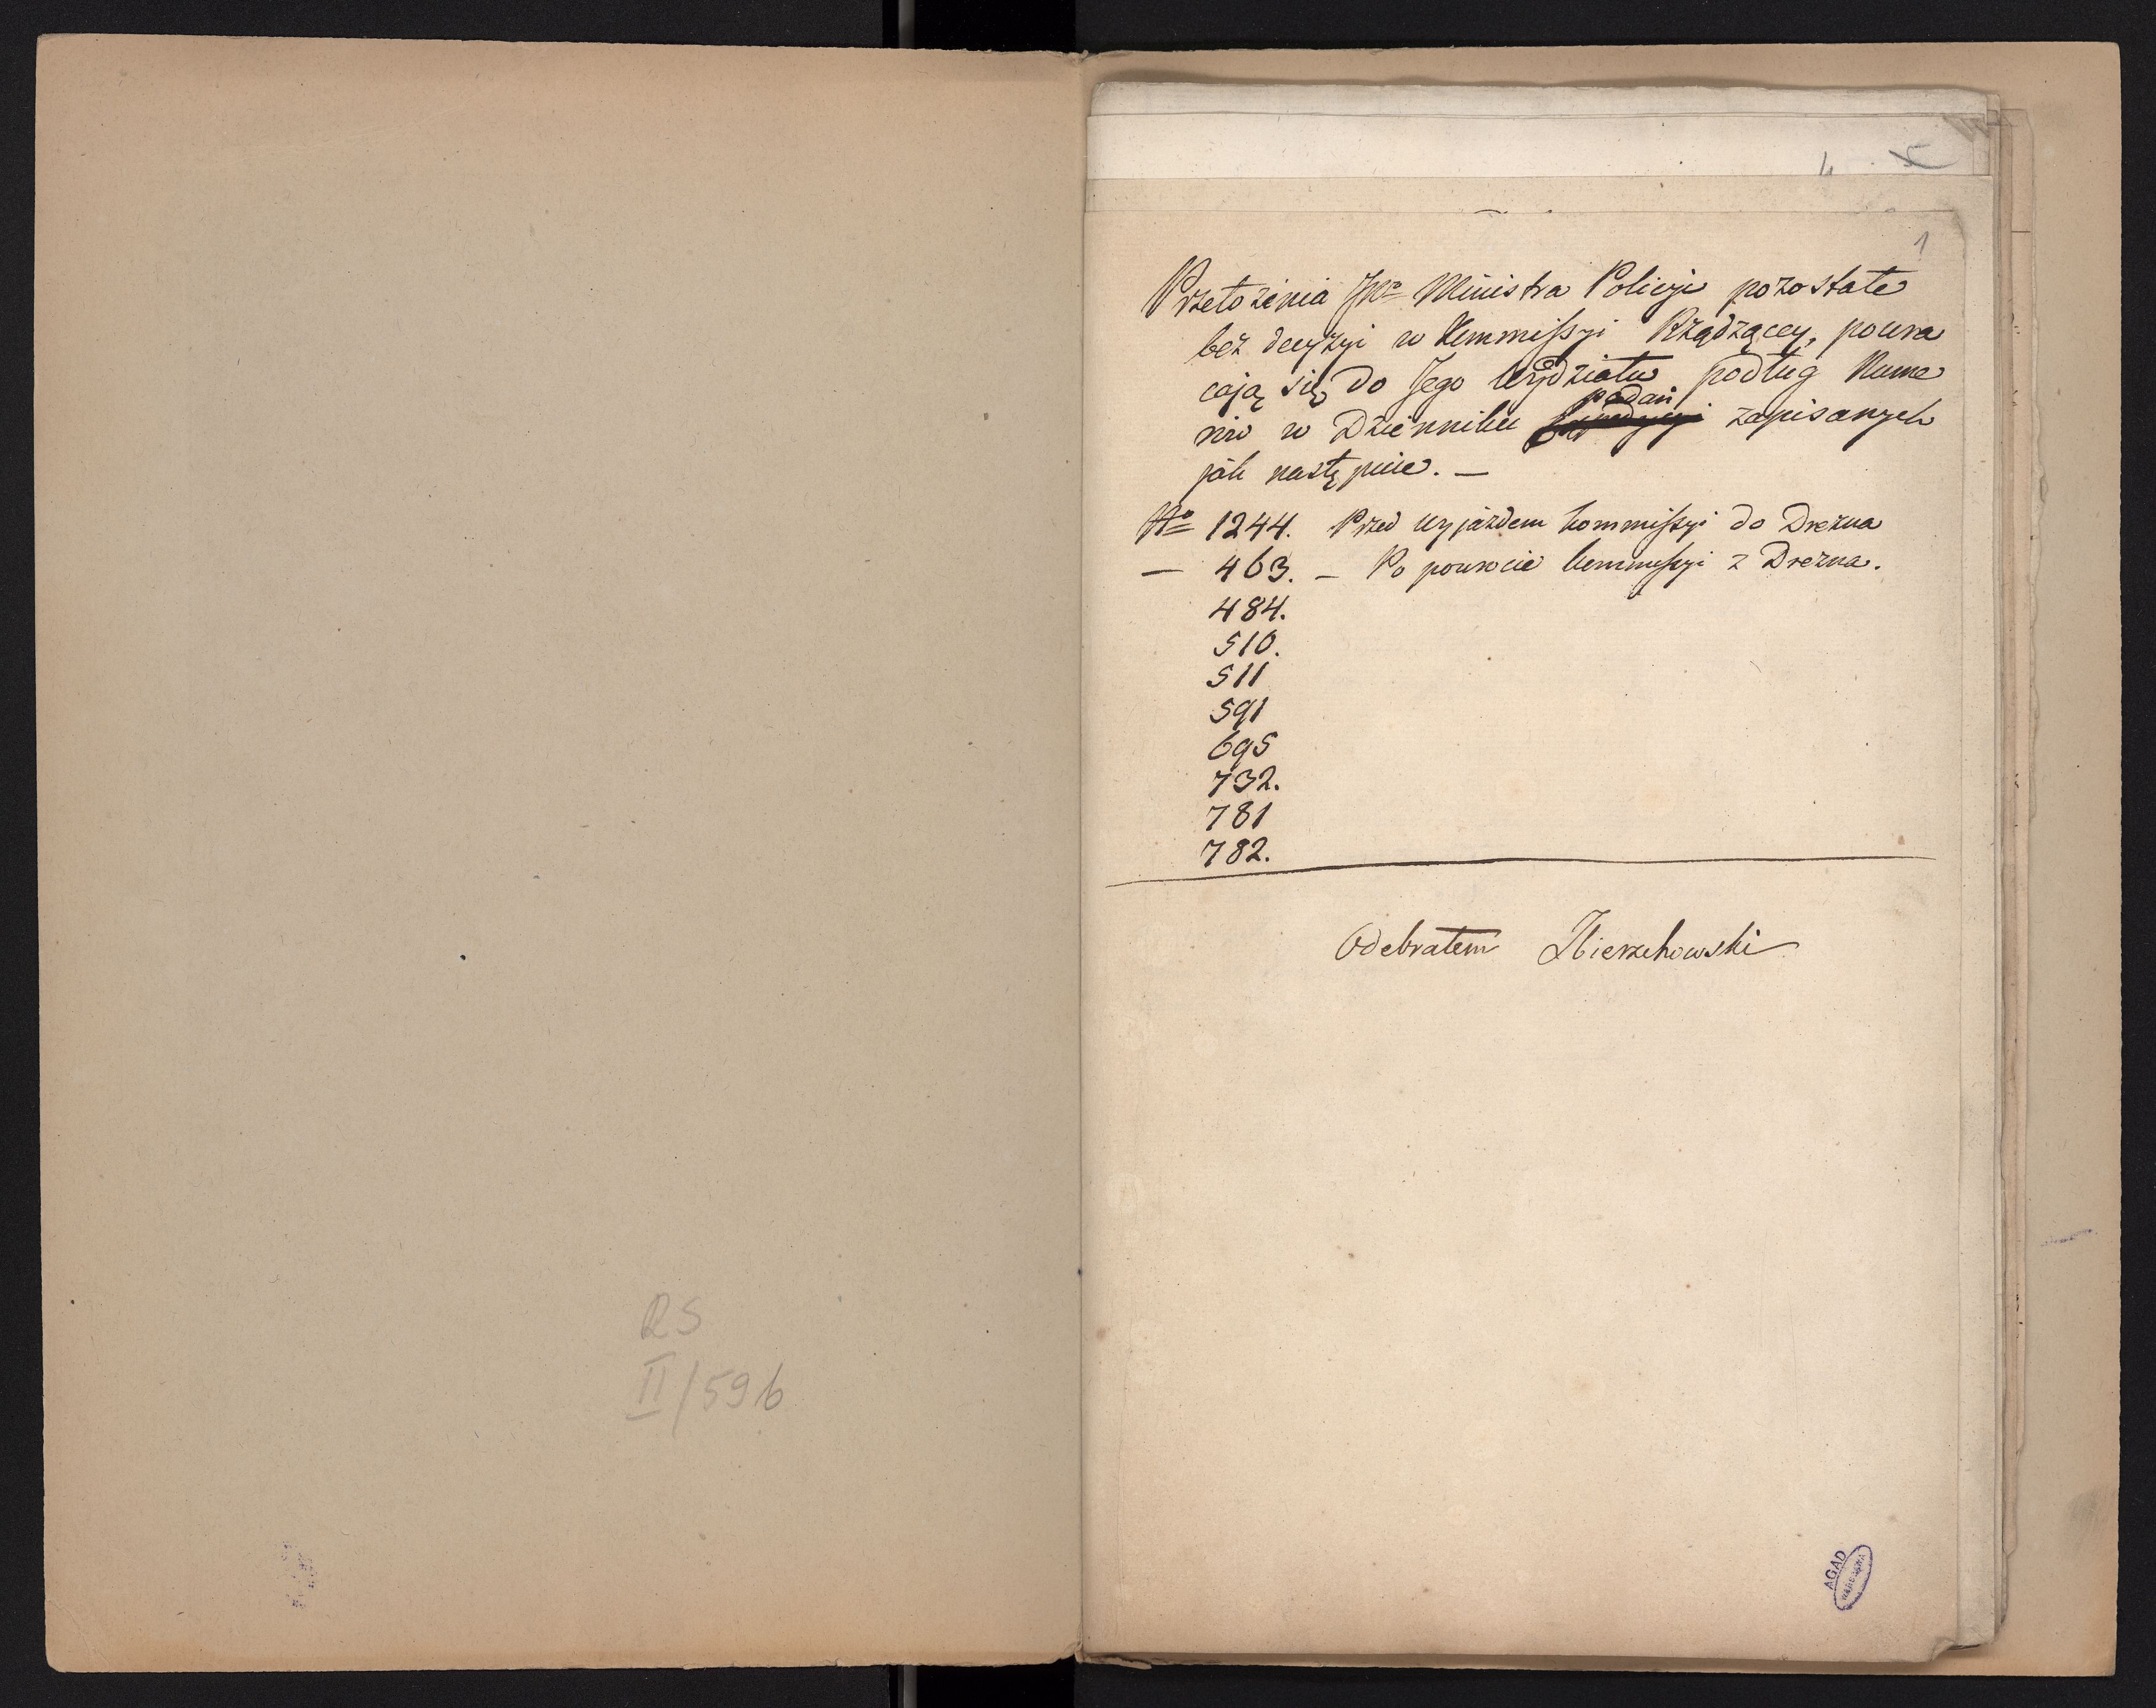 RS
II/596
4 5
1
Przełożenia JW° Ministra Policyi pozostałe
bez decyzyi w Kommissyi Rządzącey, powra
cają się do Jego Wydziału podług Nume
podań
rów w Dzienniku zapisanych
jak następuie. —
N° 1244. Przed wyjazdem kommissyi do Drezna
— 463. — Po powrocie kommissyi z Drezna.
484.
510.
511
591
695
732.
781
782.
Odebrałem Zbierzchowski
AGAD
WARSZAWA